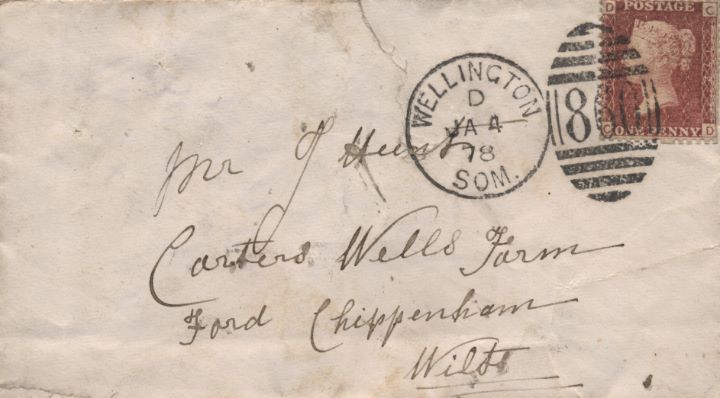 D POSTAGE C
WELLINGTON
D
JA 4
78
SOM.
C ONE PENNY D
Mr J Hunt
Carters Wells Farm
Ford Chippenham
Wilts